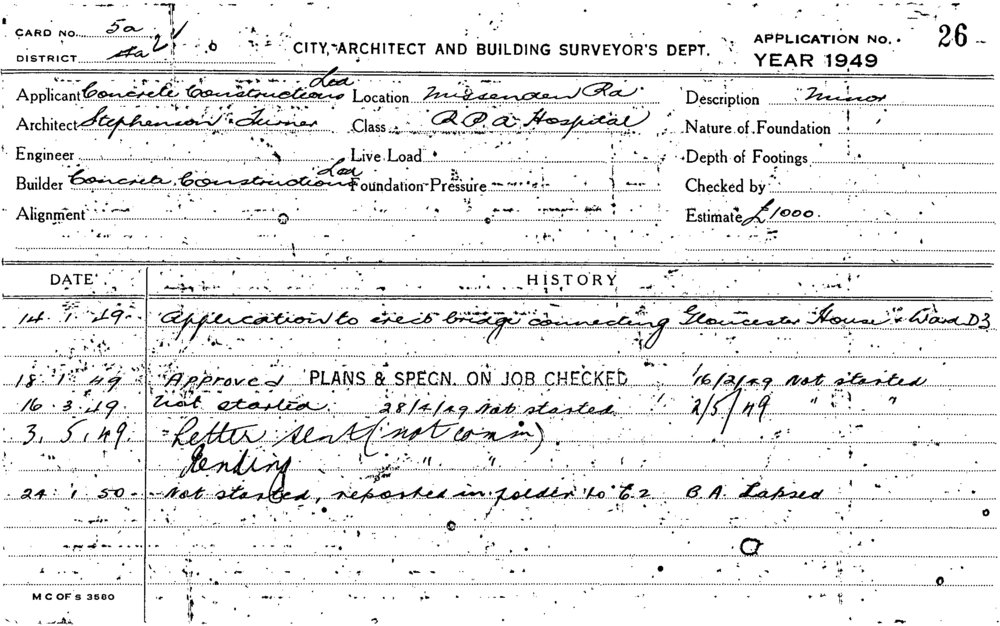 CARD NO. 5a
DISTRICT 4a 2
CITY ARCHITECT AND BUILDING SURVEYOR'S DEPT.
APPLICATION No. 26
YEAR 1949
Applicant Concrete Constructions Ltd Location Missenden Rd Description Minor
Architect Stephenson & Turner Class R.P.A Hospital Nature of Foundation
Engineer Live Load Depth of Footings
Builder Concrete Constructions Ltd Foundation Pressure Checked by
Alignment Estimate £1000.
DATE HISTORY
14. 1. 49. Application to erect bridge connecting Gloucester House & Ward D3
18. 1. 49 Approved PLANS & SPECN. ON JOB CHECKED 16/2/49 Not started
16. 3. 49. Not started. 28/4/49 Not started 2/5/49 " "
3. 5. 49. Letter sent (not comm)
Pending " "
24. 1. 50 Not started, reported in folder to E.2 B.A. Lapsed
M C OF S 3580